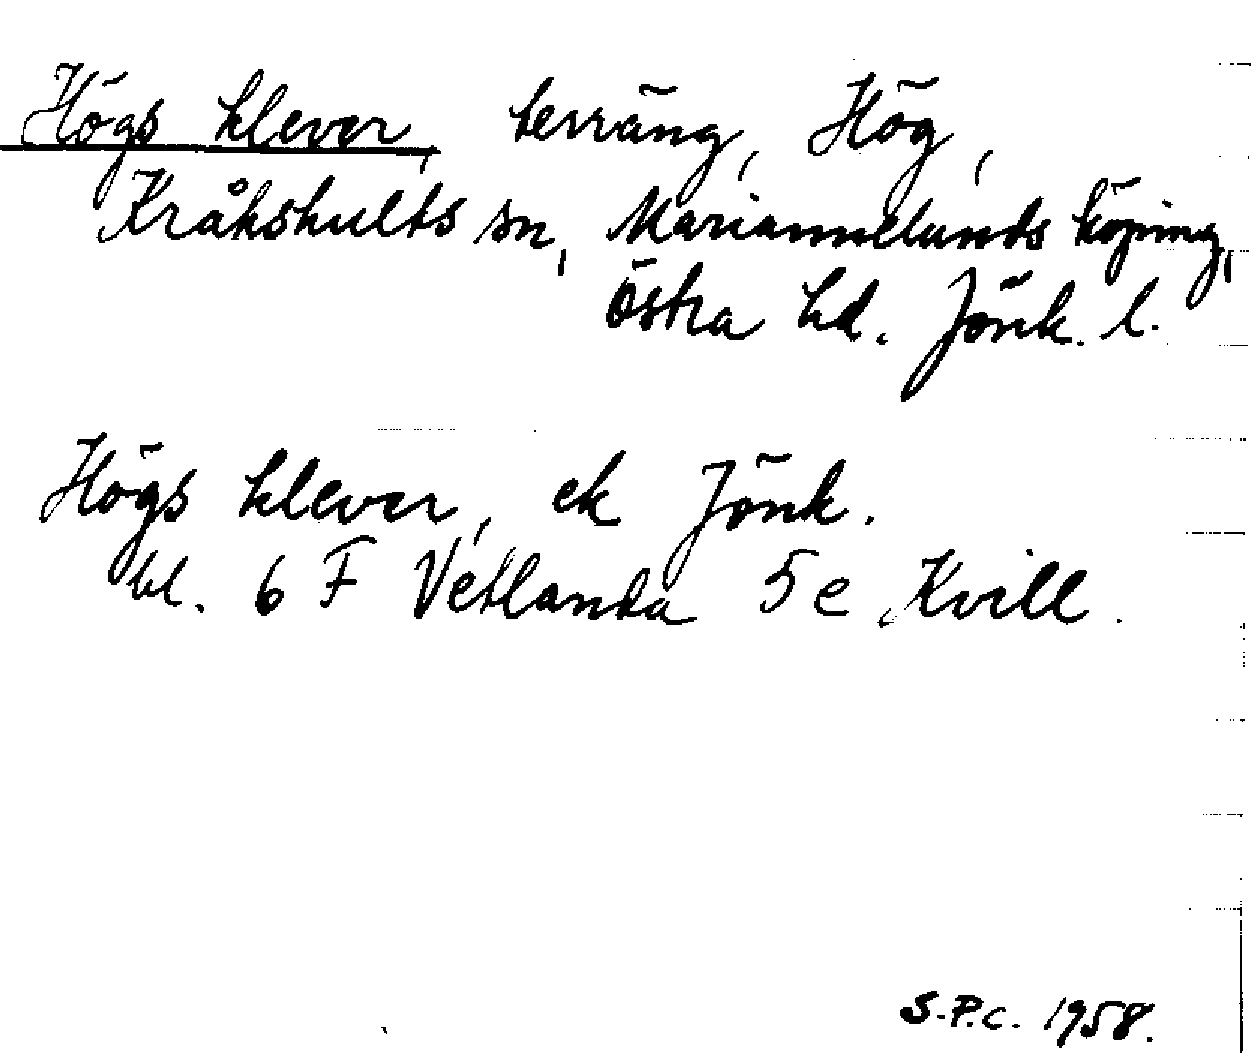 Högs klever, terräng, Hög,
Kråkshults sn, Mariannelunds köping,
Östra hd. Jönk. l.
Högs klever, ek Jönk.
bl. 6 F Vetlanda 5 e Kvill.
S.P.C. 1958.